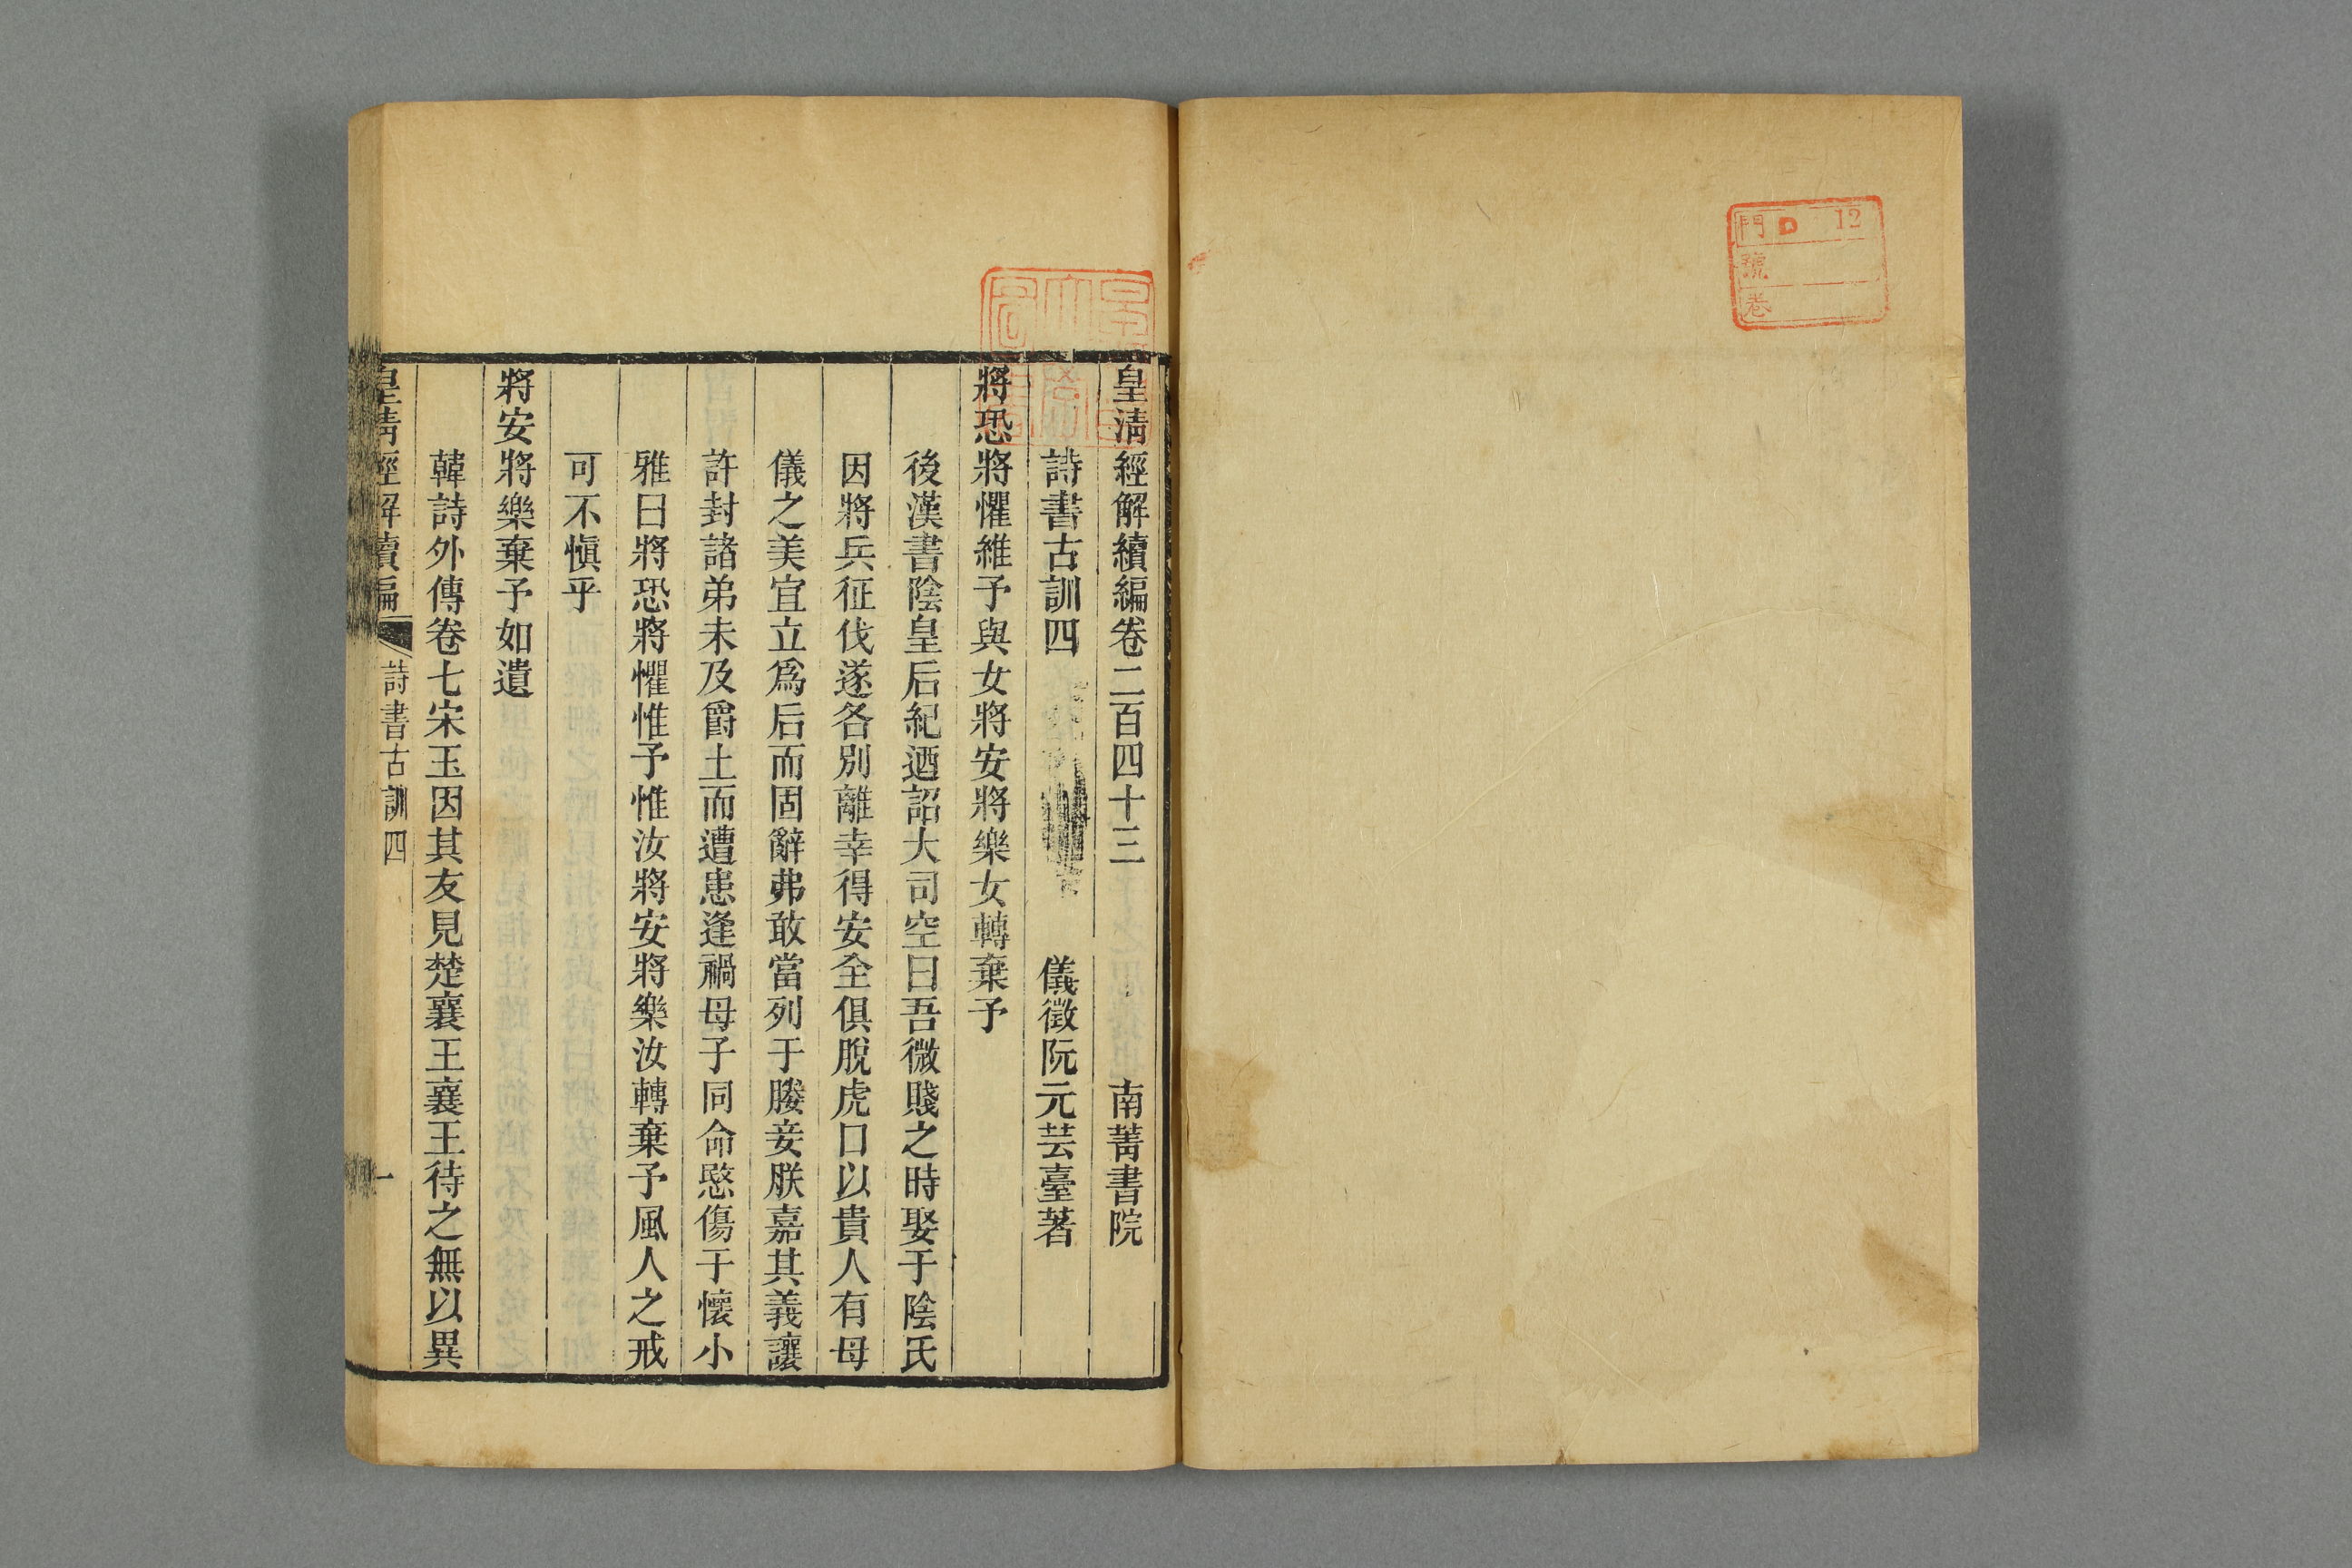 門 D 12
號
卷
皇清經解續編卷二百四十三 南菁書院
詩書古訓四 儀徵阮元芸臺著
將恐將懼維予與女將安將樂女轉棄予
後漢書陰皇后紀迺詔大司空曰吾微賤之時娶于陰氏
因將兵征伐遂各別離幸得安全俱脫虎口以貴人有母
儀之美宜立爲后而固辭弗敢當列于媵妾朕嘉其義讓
許封諸弟未及爵土而遭患逢禍母子同命愍傷于懷小
雅曰將恐將懼惟予惟汝將安將樂汝轉棄予風人之戒
可不愼乎
將安將樂棄予如遺
韓詩外傳卷七宋玉因其友見楚襄王襄王待之無以異
皇清經解續編 詩書古訓四 一